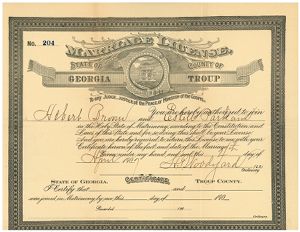 No. 204
MARRIAGE LICENSE.
STATE OF COUNTY OF
GEORGIA TROUP
To any Judge, Justice of the Peace, or Minister of the Gospel.
You are hereby authorized to join
Hebert Brown and
in the Holy State of Matrimony, according to the Constitution and
Laws of this State, and for so doing this shall be your License.
And you are hereby required to return this License to me with your
Certificate hereon of the fact and date of the Marriage.
Given under my hand and seal this day of
April
Ordinary
CERTIFICATE.
STATE OF GEORGIA. TROUP COUNTY.
I Certify that and
were joined in Matrimony by me this day of 190
Recorded 190
Ordinary.